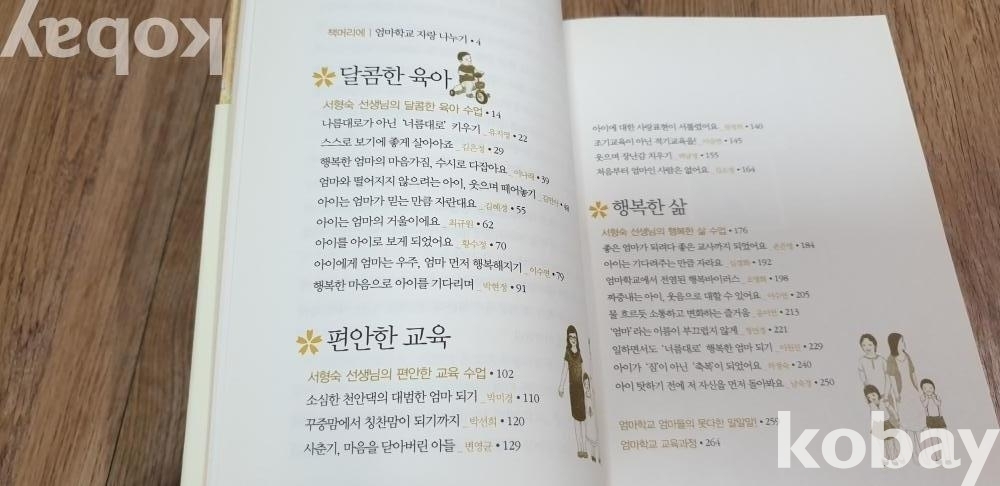 kobay
책머리에 | 엄마학교 자랑 나누기 • 4
달콤한 육아
서형숙 선생님의 달콤한 육아 수업 • 14
나름대로가 아닌 '너름대로' 키우기 _유지영 • 22
스스로 보기에 좋게 살아야죠 _김은정 • 29
행복한 엄마의 마음가짐, 수시로 다잡아요 _이나래 • 39
엄마와 떨어지지 않으려는 아이, 웃으며 떼어놓기
아이는 엄마가 믿는 만큼 자란대요 _김혜경 • 55
아이는 엄마의 거울이에요 _최규원 • 62
아이를 아이로 보게 되었어요 _황수정 • 70
아이에게 엄마는 우주, 엄마 먼저 행복해지기 _이수면 • 79
행복한 마음으로 아이를 기다리며 _박현정 • 91
편안한 교육
서형숙 선생님의 편안한 교육 수업 • 102
소심한 천안댁의 대범한 엄마 되기 _박미경 • 110
꾸중맘에서 칭찬맘이 되기까지 _박선희 • 120
사춘기, 마음을 닫아버린 아들 _변영균 • 129
아이에 대한 사랑표현이 서툴렀어요 • 140
조기교육이 아닌 적기교육을! • 145
웃으며 장난감 치우기 • 155
처음부터 엄마인 사람은 없어요 • 164
행복한 삶
서형숙 선생님의 행복한 삶 수업 • 176
좋은 엄마가 되려다 좋은 교사까지 되었어요 • 184
아이는 기다려주는 만큼 자라요 _김경화 • 192
엄마학교에서 전염된 행복바이러스 • 198
짜증내는 아이, 웃음으로 대할 수 있어요 • 205
물 흐르듯 소통하고 변화하는 즐거움 • 213
'엄마'라는 이름이 부끄럽지 않게 • 221
일하면서도 '너름대로' 행복한 엄마 되기 • 229
아이가 '짐'이 아닌 '축복'이 되었어요 • 240
아이 탓하기 전에 저 자신을 먼저 돌아봐요 _남숙경 • 250
엄마학교 엄마들의 못다한 말말말! • 259
엄마학교 교육과정 • 264
kobay